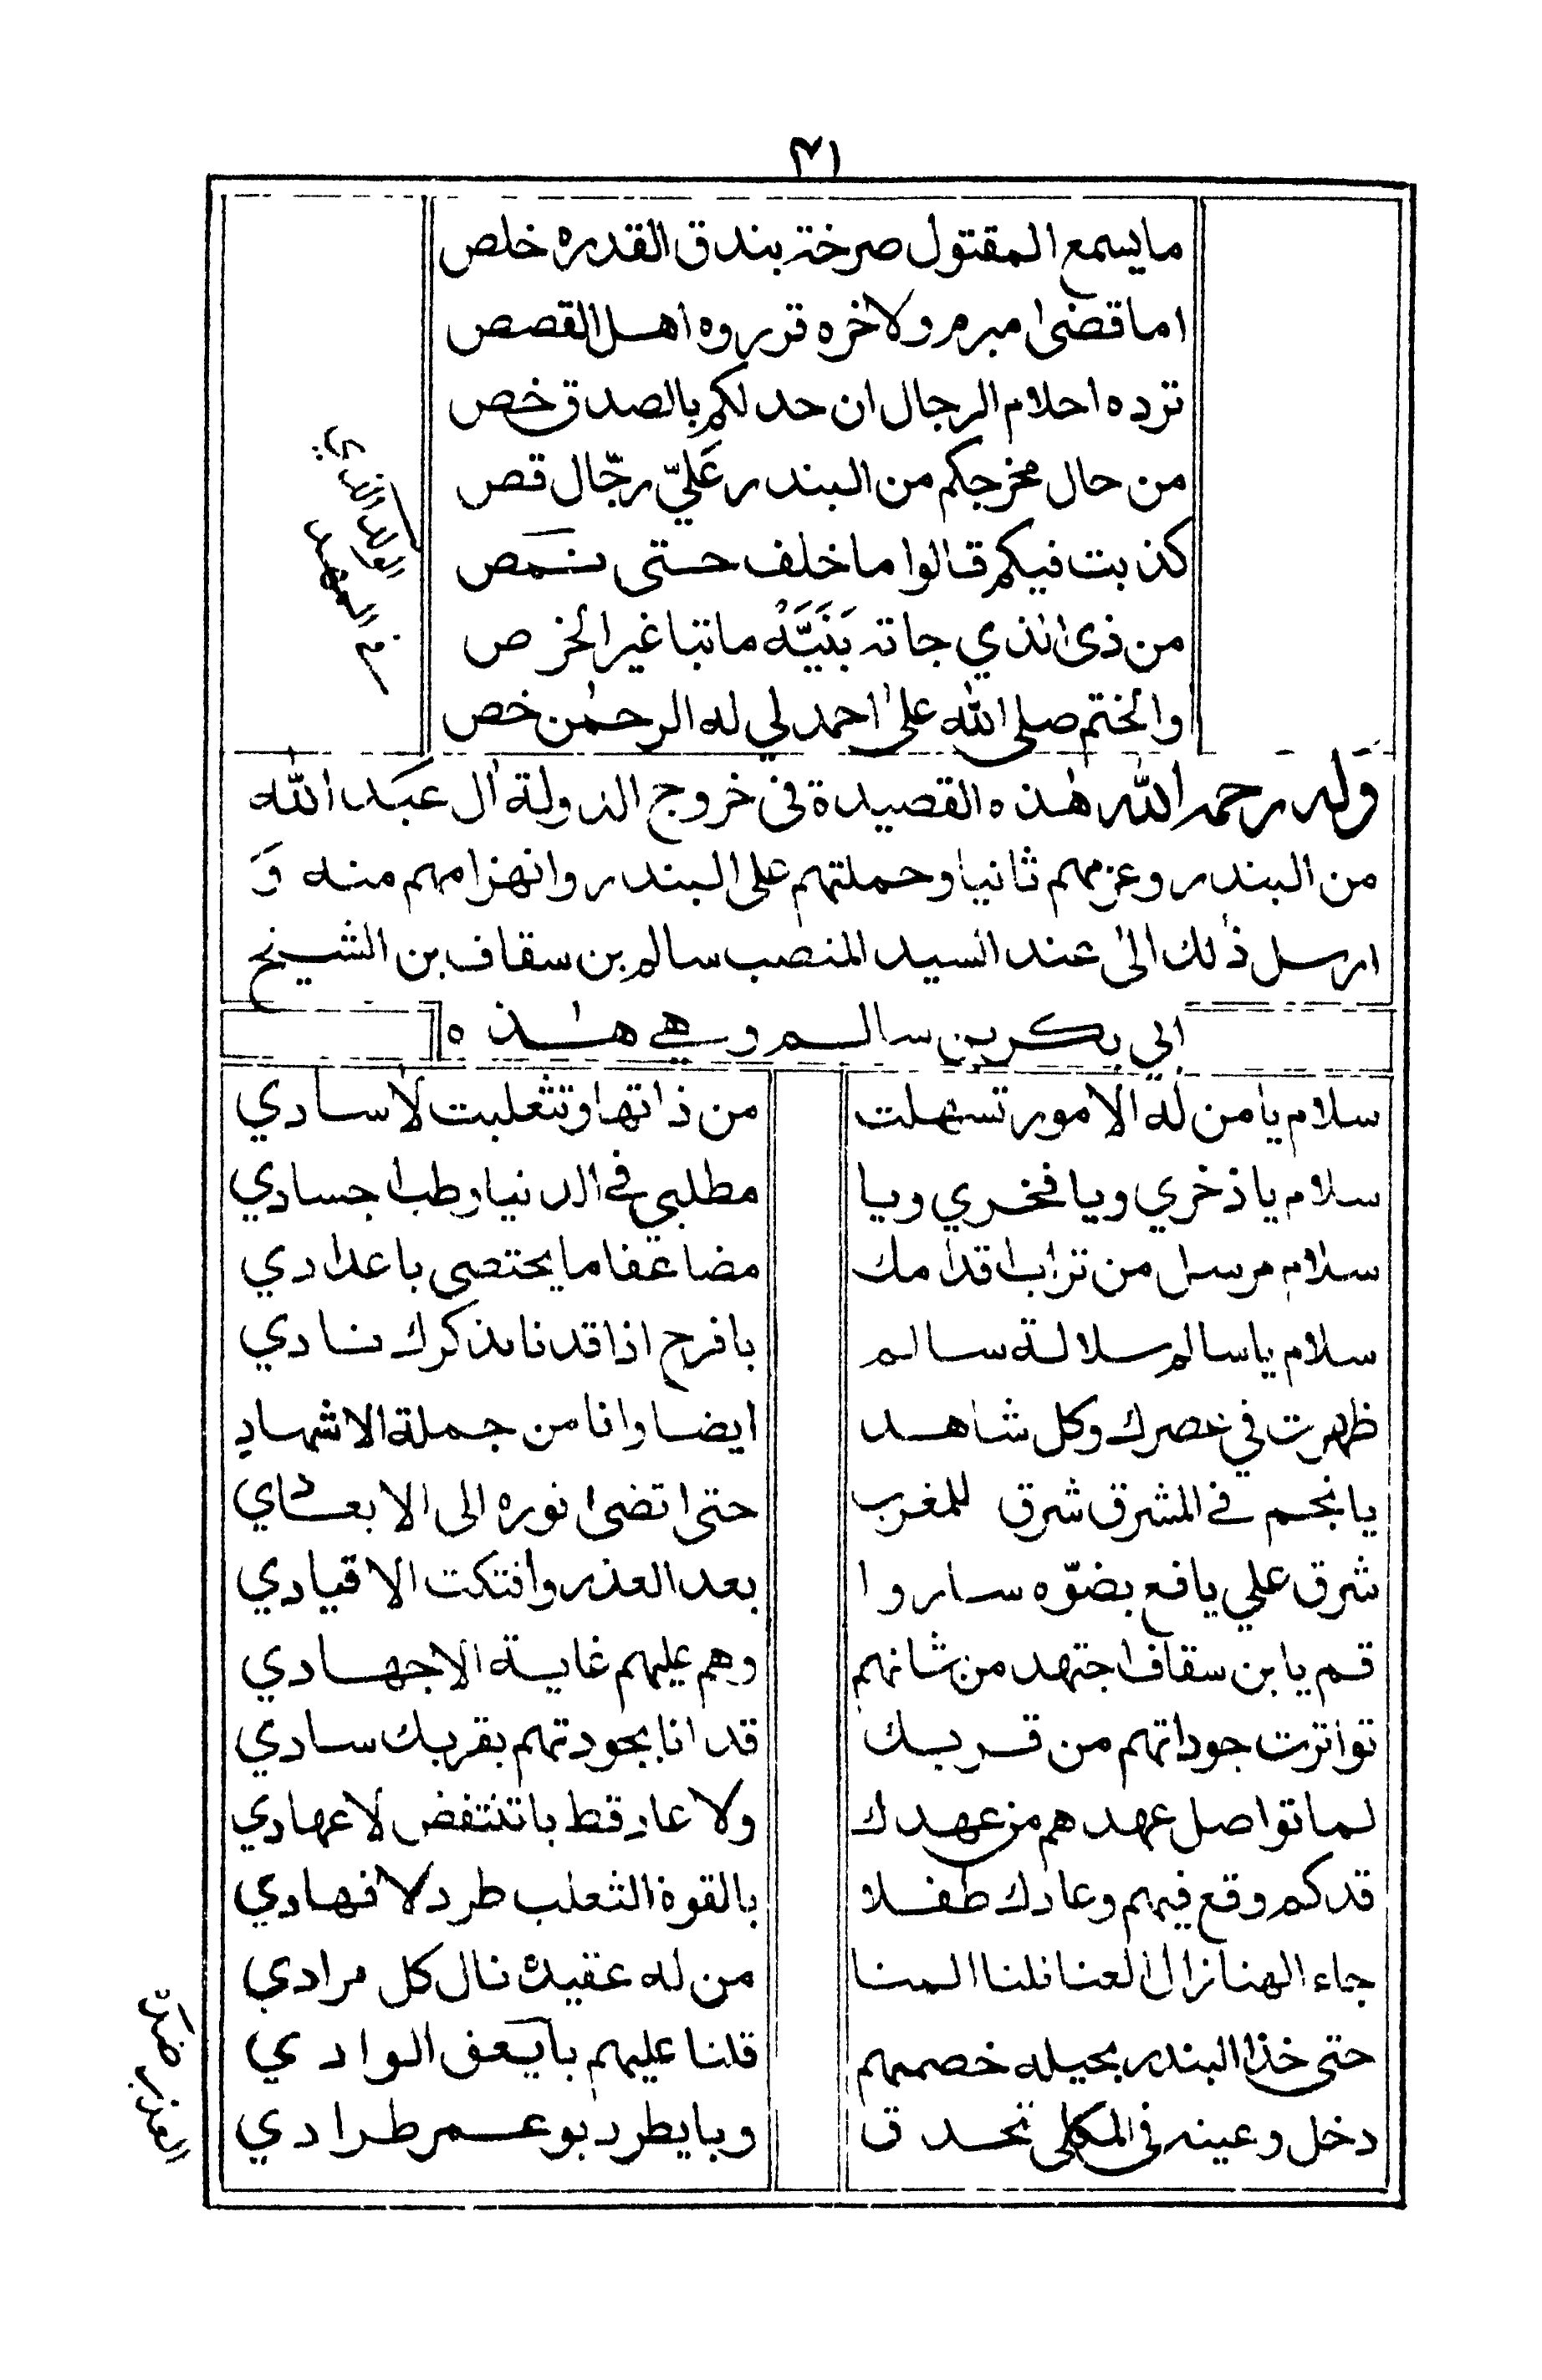 ٣١
مايسمع المقتول صرخته بندق القدره خلص
اما قضىٰ مبرم ولاخره قرروه اهل القصص
ترده احلام الرجال ان حد لكم بالصدق خص
من حال مخرجكم من البندر عَليّ رجّال قص
كذبت فيكم قالوا ما خلف حتى
من ذىٰ الذي جاته بَنَيَّهْ ماتبا غير الخرص
والختم صلى الله علىٰ احمد لي له الرحمٰن خص
وله رحمه الله هٰذه القصيدة في خروج الدولة اٰل عبد الله
من البندر وعزمهم ثانيا وحملتهم على البندر وانهزامهم منه وَ
ارسل ذٰلك الىٰ عند السيد المنصب سالم بن سقاف بن الشيخ
ابي بكر بن سالم وهي هٰذه
سلام يا من له الامور تسهلت من ذاتها وتثعلبت لاسادي
سلام يا ذخري ويا فخري ويا مطلبي في الدنيا وطب اجسادي
سلام مرسل من تراب اقدامك مضاعفا ما يحتصى باعدادي
سلام يا سالم سلالة سالم بافرح اذا قدنا بذكرك نادي
ظهرت في عصرك وكل شاهد ايضا وانا من جملة الاشهادِ
يا نجم في المشرق شرق للمغرب حتى اتضىٰ نوره الى الابعادي
شرق على يافع بضوّه ساروا بعد العذر وافتكت الاقيادي
قم يا بن سقاف اجتهد من شانهم وهم عليهم غاية الاجهادي
تواترت جوداتهم من قربك قد انا بجودتهم بقربك سادي
لما تواصل عهدهم من عهدك ولا عاد قط باتنتفض لاعهادي
قدكم وقع فيهم وعادك طفلا بالقوة الثعلب طرد لافهادي
جاء الهنا زال العنا نلنا المنا من له عقيدة نال كل مرادي
حتى خذا البندر بحيله خصمهم قلنا عليهم بايعق الوادي
دخل وعينه في المكلى تحدق وبايطرد بو عمر طرادي